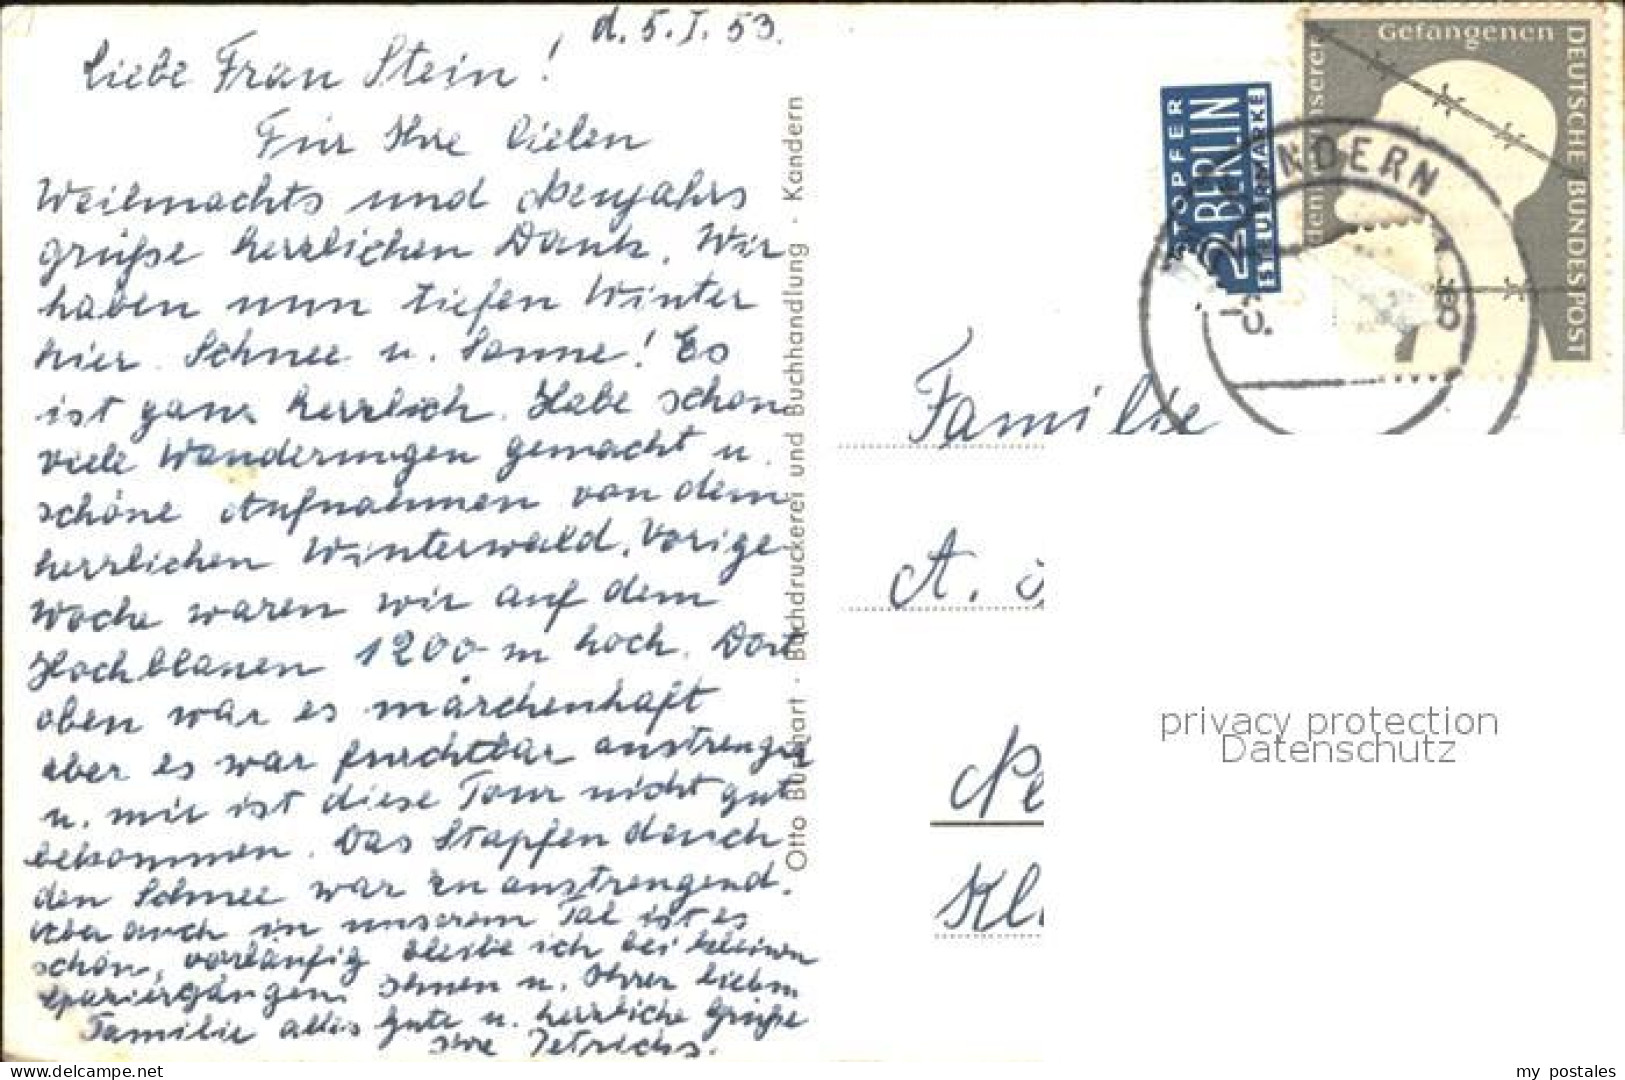 d. 5. I. 53.
Liebe Frau Stein!
Für Ihre lieben
Weihnachts und Neujahrs
grüße herzlichen Dank. Wir
haben nun tiefen Winter
hier. Schnee u. Sonne! Es
ist ganz herrlich. Habe schon
viele Wanderungen gemacht u.
schöne Aufnahmen von dem
herrlichen Winterwald. Vorige
Woche waren wir auf dem
Hochblauen 1200 m hoch. Dort
oben war es märchenhaft
aber es war furchtbar anstrengend
u. mir ist diese Tour nicht gut
bekommen. Das Stapfen durch
den Schnee war zu anstrengend.
Aber auch in unserem Tal ist es
schön, vorläufig bleibe ich bei kleinen
Spaziergängen. Ihnen u. Ihrer lieben
Familie alles Gute u. herzliche Grüße
Ihre
Otto Burkhart · Buchdruckerei und Buchhandlung · Kandern
NOTOPFER
2 BERLIN
STEUERMARKE
Gefangenen
unserer
DEUTSCHE BUNDESPOST
NDERN
Familie
A.
Ne
Kl
privacy protection
Datenschutz
oldthing.net
my postales